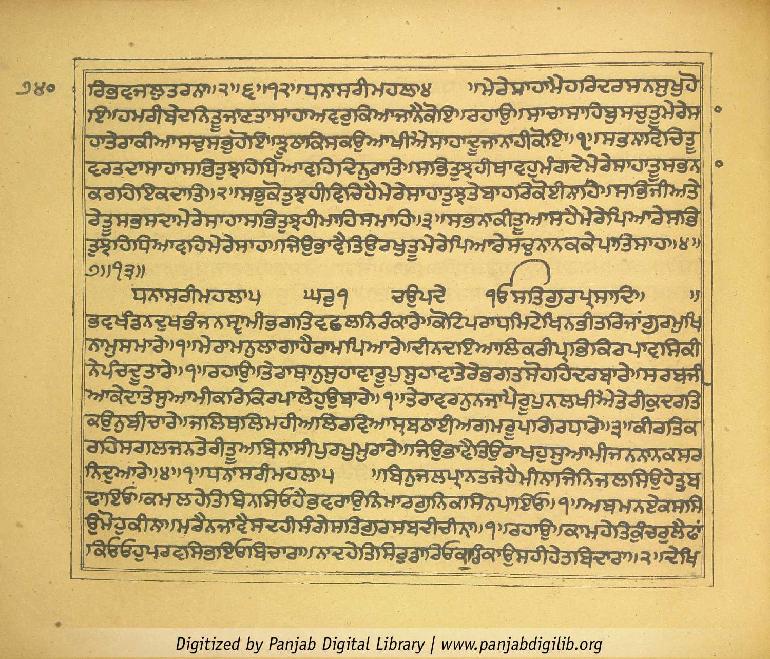 ੭੪੦
ਰਿਭਵਜਲੁਤਰਨਾ॥੨॥੬॥੧੨॥ਧਨਾਸਰੀਮਹਲਾ੪ ॥ਮੇਰੇਸਾਹਾਮੈਹਰਿਦਰਸਨਸੁਖੁਹੋ
ਇ॥ਹਮਰੀਬੇਦਨਿਤੂਜਾਣਤਾਸਾਹਾਅਵਰੁਕਿਆਜਾਨੈਕੋਇ॥ਰਹਾਉ॥ਸਾਚਾਸਾਹਿਬੁਸਚੁਤੂਮੇਰੇਸ
ਹਾਤੇਰਾਕੀਆਸਚੁਸਭੁਹੋਇ॥ਝੂਠਾਕਿਸਕਉਆਖੀਐਸਾਹਾਦੂਜਾਨਾਹੀਕੋਇ॥੧॥ਸਭਨਾਵਿਚਿਤੂ
ਵਰਤਦਾਸਾਹਾਸਭਿਤੁਝਹਿਧਿਆਵਹਿਦਿਨੁਰਾਤਿ॥ਸਭਿਤੁਝਹੀਥਾਵਹੁਮੰਗਦੇਮੇਰੇਸਾਹਾਤੂਸਭਨ
ਕਰਹਿਇਕਦਾਤਿ॥੨॥ਸਭੁਕੋਤੁਝਹੀਵਿਚਿਹੈਮੇਰੇਸਾਹਾਤੁਝਤੇਬਾਹਰਿਕੋਈਨਾਹਿ॥ਸਭਿਜੀਅਤੇ
ਰੇਤੂਸਭਸਦਾਮੇਰੇਸਾਹਾਸਭਿਤੁਝਹੀਮਾਹਿਸਮਾਹਿ॥੩॥ਸਭਨਾਕੀਤੂਆਸਹੈਮੇਰੇਪਿਆਰੇਸਭਿ
ਤੁਝਹਿਧਿਆਵਹਿਮੇਰੇਸਾਹ॥ਜਿਉਭਾਵੈਤਿਉਰਖੁਤੂਮੇਰੇਪਿਆਰੇਸਚੁਨਾਨਕਕੇਪਾਤਿਸਾਹ॥੪॥
੭॥੧੩॥
ਧਨਾਸਰੀਮਹਲਾ੫ ਘਰੁ੧ ਚਉਪਦੇ ੴਸਤਿਗੁਰਪ੍ਰਸਾਦਿ॥ ॥
ਭਵਖੰਡਨਦੁਖਭੰਜਨਸ੍ਵਾਮੀਭਗਤਿਵਛਲਨਿਰੰਕਾਰੇ॥ਕੋਟਿਪਰਾਧਮਿਟੇਖਿਨਭੀਤਰਿਜਾਂਗੁਰਮੁਖਿ
ਨਾਮੁਸਮਾਰੇ॥੧॥ਮੇਰਾਮਨੁਲਾਗਾਹੈਰਾਮਪਿਆਰੇ॥ਦੀਨਦਇਆਲਿਕਰੀਪ੍ਰਭਿਕਿਰਪਾਵਸਿਕੀ
ਨੇਪੰਚਦੂਤਾਰੇ॥੧॥ਰਹਾਉ॥ਤੇਰਾਥਾਨੁਸੁਹਾਵਾਰੂਪੁਸੁਹਾਵਾਤੇਰੇਭਗਤਸੋਹਹਿਦਰਬਾਰੇ॥ਸਰਬਜੀ
ਆਕੇਦਾਤੇਸੁਆਮੀਕਰਿਕਿਰਪਾਲੇਹੁਉਬਾਰੇ॥੧॥ਤੇਰਾਵਰਨੁਨਜਾਪੈਰੂਪੁਨਲਖੀਐਤੇਰੀਕੁਦਰਤਿ
ਕਉਨੁਬੀਚਾਰੇ॥ਜਲਿਥਲਿਮਹੀਅਲਿਰਵਿਆਸ੍ਰਬਠਾਈਅਗਮਰੂਪਗਿਰਧਾਰੇ॥੩॥ਕੀਰਤਿਕ
ਰਹਿਸਗਲਜਨਤੇਰੀਤੂਅਬਿਨਾਸੀਪੁਰਖੁਮੁਰਾਰੇ॥ਜਿਉਭਾਵੈਤਿਉਰਾਖਹੁਸੁਆਮੀਜਨਨਾਨਕਸਰ
ਨਿਦੁਆਰੇ॥੪॥੧॥ਧਨਾਸਰੀਮਹਲਾ੫ ॥ਬਿਨੁਜਲਪ੍ਰਾਨਤਜੇਹੈਮੀਨਾਜਿਨਿਜਲਸਿਉਹੇਤੁਬ
ਢਾਇਓ॥ਕਮਲਹੇਤਿਬਿਨਸਿਓਹੈਭਵਰਾਉਨਿਮਾਰਗੁਨਿਕਸਿਨਪਾਇਓ॥੧॥ਅਬਮਨਏਕਸਸਿ
ਉਮੋਹੁਕੀਨਾ॥ਮਰੈਨਜਾਵੈਸਦਹੀਸੰਗੇਸਤਿਗੁਰਸਬਦੀਚੀਨਾ॥੧॥ਰਹਾਉ॥ਕਾਮਹੇਤਿਕੁੰਚਰੁਲੈਫਾਂ
ਕਿਓਓਹੁਪਰਵਸਿਭਇਓਬਿਚਾਰਾ॥ਨਾਦਹੇਤਿਸਿਰੁਡਾਰਿਓਕੁਰੰਕਾਉਸਹੀਹੇਤਬਿਦਾਰਾ॥੨॥ਦੇਖਿ
Digitized by Panjab Digital Library | www.panjabdigilib.org